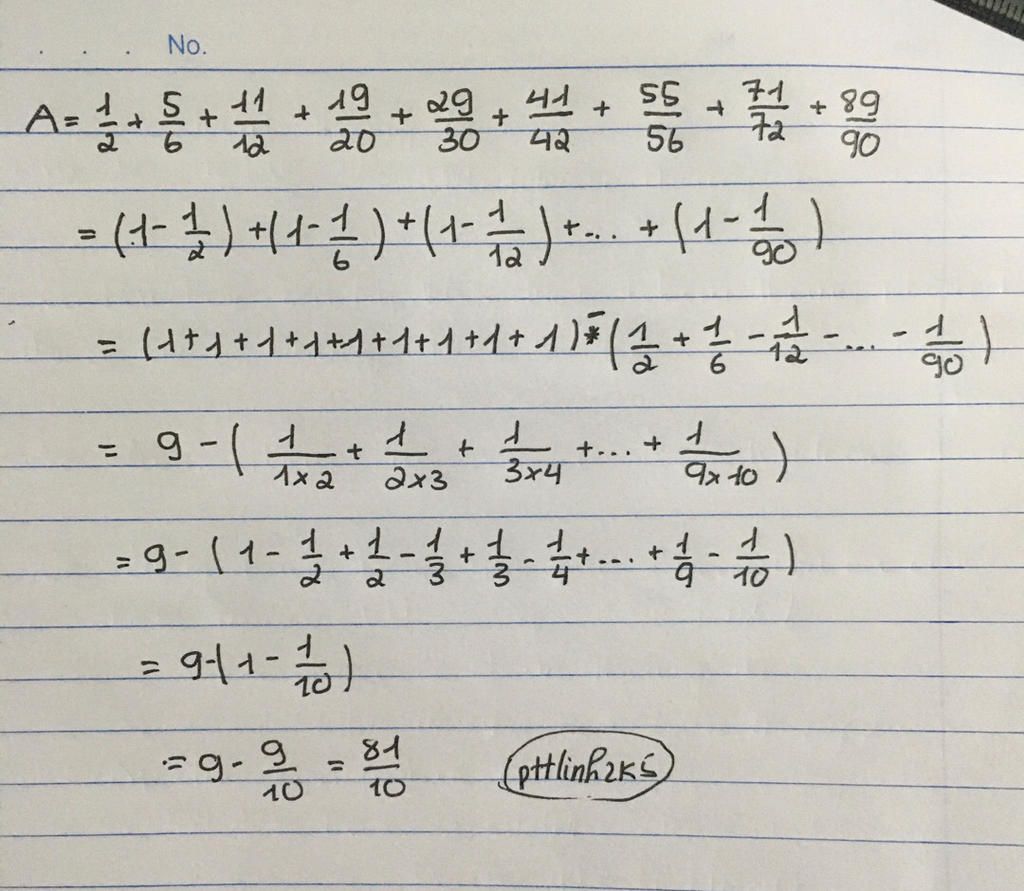 No.
A = 1/2 + 5/6 + 11/12 + 19/20 + 29/30 + 41/42 + 55/56 + 71/72 + 89/90
= (1 - 1/2) + (1 - 1/6) + (1 - 1/12) + ... + (1 - 1/90)
= (1 + 1 + 1 + 1 + 1 + 1 + 1 + 1 + 1) - (1/2 + 1/6 - 1/12 - ... - 1/90)
= 9 - (1/1×2 + 1/2×3 + 1/3×4 + ... + 1/9×10)
= 9 - (1 - 1/2 + 1/2 - 1/3 + 1/3 - 1/4 + ... + 1/9 - 1/10)
= 9 - (1 - 1/10)
= 9 - 9/10 = 81/10 pttlinh2k5